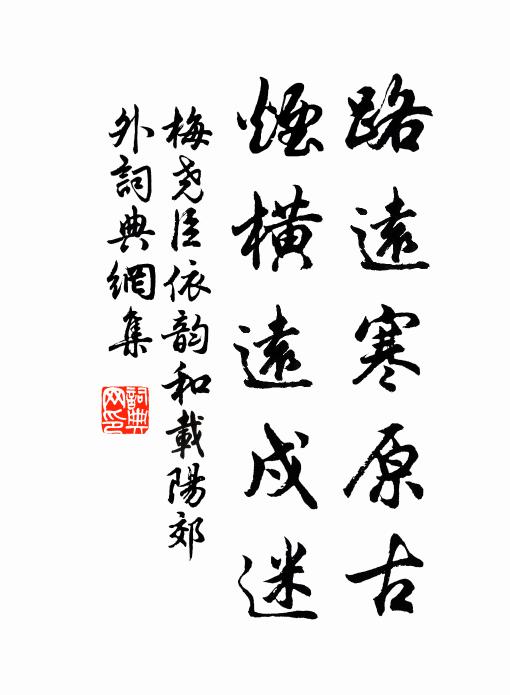 路遠寒原古
煙橫遠戍迷
梅堯臣依韵和載陽郊
外詞典網集
詞典网印